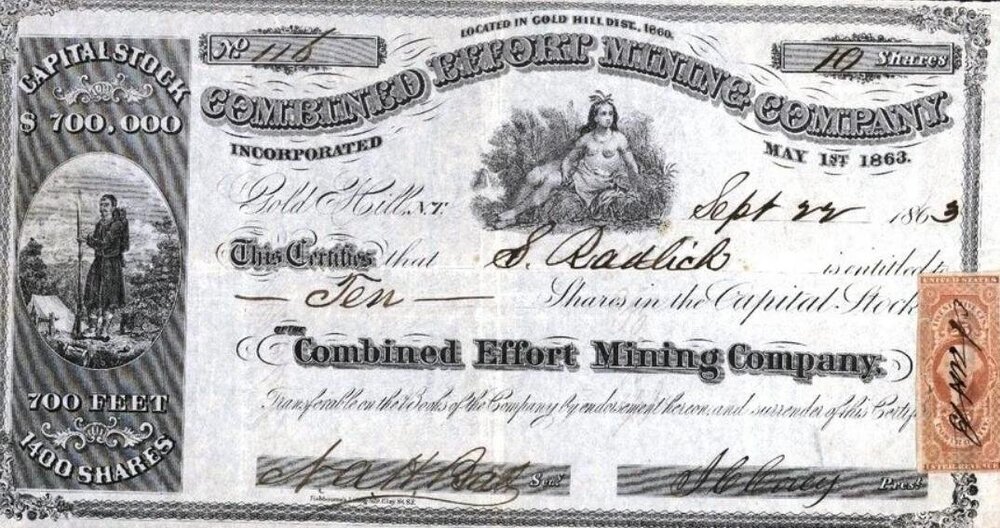 CAPITAL STOCK
$ 700,000
700 FEET
1400 SHARES
No 118
LOCATED IN GOLD HILL DIST. 1860.
10 Shares
COMBINED EFFORT MINING COMPANY
INCORPORATED
MAY 1ST 1863.
Gold Hill, N.T. Sept 22 1863
This Certifies that S. Radlick is entitled to
— Ten — Shares in the Capital Stock
OF THE
Combined Effort Mining Company,
Transferable on the Books of the Company by endorsement hereon and surrender of this Certif
Secy.
Prest.
UNITED STATES
INTER. REVENUE